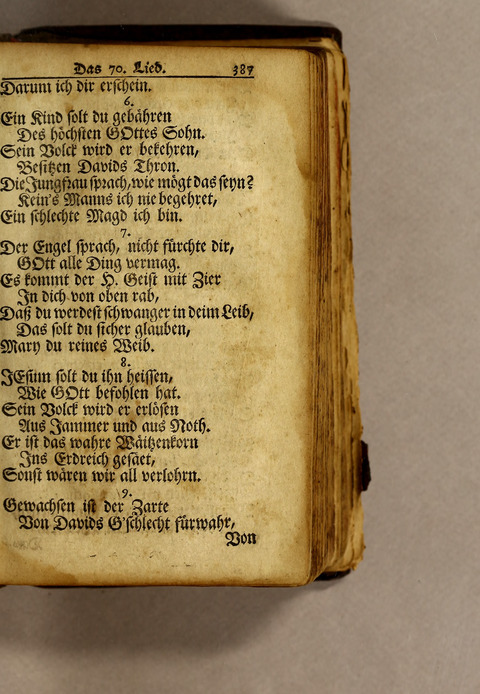 Das 70. Lied. 387
Darum ich dir erschein.
6.
Ein Kind solt du gebähren
Des höchsten GOttes Sohn.
Sein Volck wird er bekehren,
Besitzen Davids Thron.
Die Jungfrau sprach, wie mögt das seyn?
Kein's Manns ich nie begehret,
Ein schlechte Magd ich bin.
7.
Der Engel sprach, nicht fürchte dir,
GOtt alle Ding vermag.
Es kommt der H. Geist mit Zier
In dich von oben rab,
Daß du werdest schwanger in deim Leib,
Das solt du sicher glauben,
Mary du reines Weib.
8.
JEsum solt du ihn heissen,
Wie GOtt befohlen hat.
Sein Volck wird er erlösen
Aus Jammer und aus Noth.
Er ist das wahre Wäitzenkorn
Ins Erdreich gesäet,
Sonst wären wir all verlohrn.
9.
Gewachsen ist der Zarte
Von Davids G'schlecht fürwahr,
Von